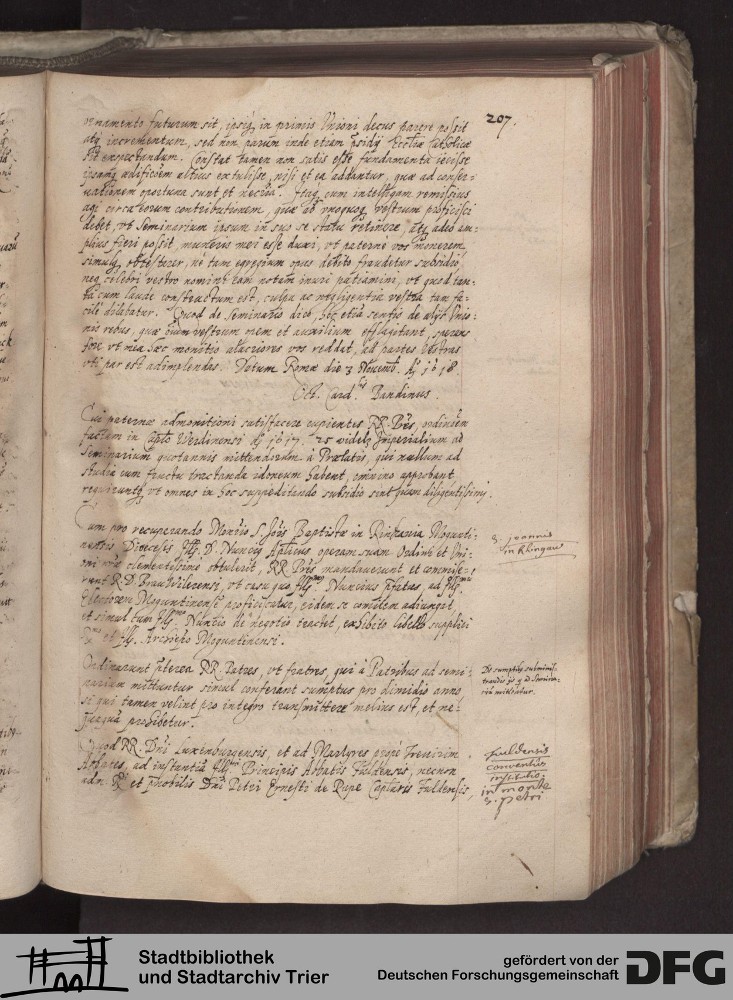 207.
ornamento futurum sit, ipsiq₃ in primis Unioni decus parere possit
atq₃ incrementum, sed non parum inde etiam pͣsidij Ecctiæ Catholicæ
sit expectandum. Constat tamen non satis esse fundamenta iecisse
ipsamq₃ ædificem altius extulisse, nisi et ea addantur, quæ ad conser=
uationem oportuna sunt et necria. Itaq₃ cum intelligam remissius
agi circa eorum contributionem, quæ ab vnoquoq₃ vestrum proficisci
debet, vt Seminarium ipsum in suo se statu retinere, atq₃ adeo am=
plius fieri possit, muneris mei esse duxi, vt paterne vos monerem
simulq₃ obtestarer, ne tam egregium opus debito fraudetur subsidio,
neq₃ celebri vestro nomini eam notam inuri patiamini, vt quod tan=
ta cum laude constructum est, culpa ac negligentia vestra tam fa=
cile dilabatur. Quod de Seminario dico, hoc etiã sentio de alijs Unio=
nis rebus, quæ oium vestrum opem et auxilium efflagitant, sperans
fore vt mea hæc monitio alacriores vos reddat, ad partes vestras
vti par est adimplendas. Datum Romæ die 3 Nouemb. Aº 1618
Oct. Card.lis Bandinus.
Cui paternæ admonitioni satisfacere cupientes RR. Pr̃es, ordinem
factam in Caplo Werdinensi Aº 1617. 25 videlz Imperialium ad
Seminarium quotannis mittendorum à Prælatis, qui nullum ad
studia cum fructu tractanda idoneum habent, omnino approbant
requiruntq₃ vt omnes in hoc suppeditando subsidio sint quam diligentissimi.
Cum pro recuperando Monrio S. Joĩs Baptistæ in Rinkauia Mogunti=
nensis Diœcesis Ills. D. Nuncius Aplicus operam suam Ordini et Uni=
oni nræ clementissime obtulerit, RR Pr̃es mandauerunt et commise=
runt R D Brauwilerensi, vt casu quo Ills.mus Nuncius pfatus, ad Ills.mum
Electorem Moguntinensẽ proficiscatur, eidem se comitem adiungat,
et simul cum Ills.mo Nuntio de negotio tractet, exhibito libello supplici
R.mo et Ills. Archiepo Moguntinensi.
S. Joannis
in Rhingau
Ordinarunt pterea RR. Patres, vt fratres, qui à Patribus ad semi=
narium mittuntur simul conferant sumptus pro dimidio anno,
si qui tamen velint pro integro transmittere melius est, et ne=
quaquã prohibetur.
De sumptibus subminis=
trandis ijs q̃ ad Semina=
riũ mittuntur.
Quod RR. Dn̄i Luxemburgensis, et ad Martyres prope Treuirim
Abbates, ad instantiã Ills.mi Principis Abbatis Fuldensis, necnon
adm R.di et pnobilis Dn̄i Petri Ernesti de Rupe Capłaris Fuldensis,
fuldensis
conventus
institutio
in monte
S. petri
Stadtbibliothek
und Stadtarchiv Trier
gefördert von der
Deutschen Forschungsgemeinschaft
DFG